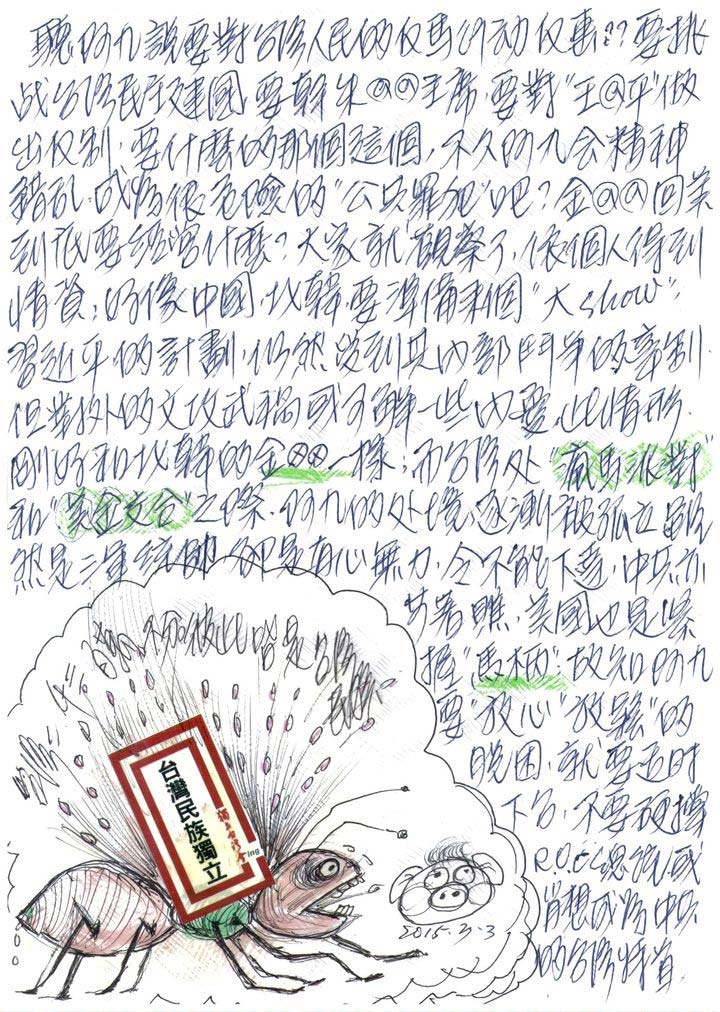 聽阿九說要對台灣人民的反馬行动反轟?? 要挑
战台灣民主建國, 要幹朱@@主席, 要對"王@平"做
出反制, 要什麼的那個這個, 不久阿九会精神
錯乱, 或為很危險的"公共罪犯"吧? 金@@回美
到底要經營什麼? 大家就觀察了, 依個人得到
情資, 好像中國, 北韓, 要準備來個"大show";
習近平的計劃, 仍然受到其内部鬥爭的牽制,
但對外的文攻武嚇或可解一些内憂, 此情形,
剛好和北韓的金@@一樣; 而台灣处
和 之際, 阿九的处境, 逐漸被孤立, 雖
然是三軍統帥, 卻是有心無力, 令不能下達, 中共亦
等著瞧, 美國也是緊
握"馬柄"; 故知阿九
要"放心""放鬆"的
脫困, 就要及时
下台, 不要硬撐
R.O.C總統, 或
肖想成為中共
的台灣特首.
不分彼此皆是台灣
民族
台灣民族獨立
ing
2015.3.3